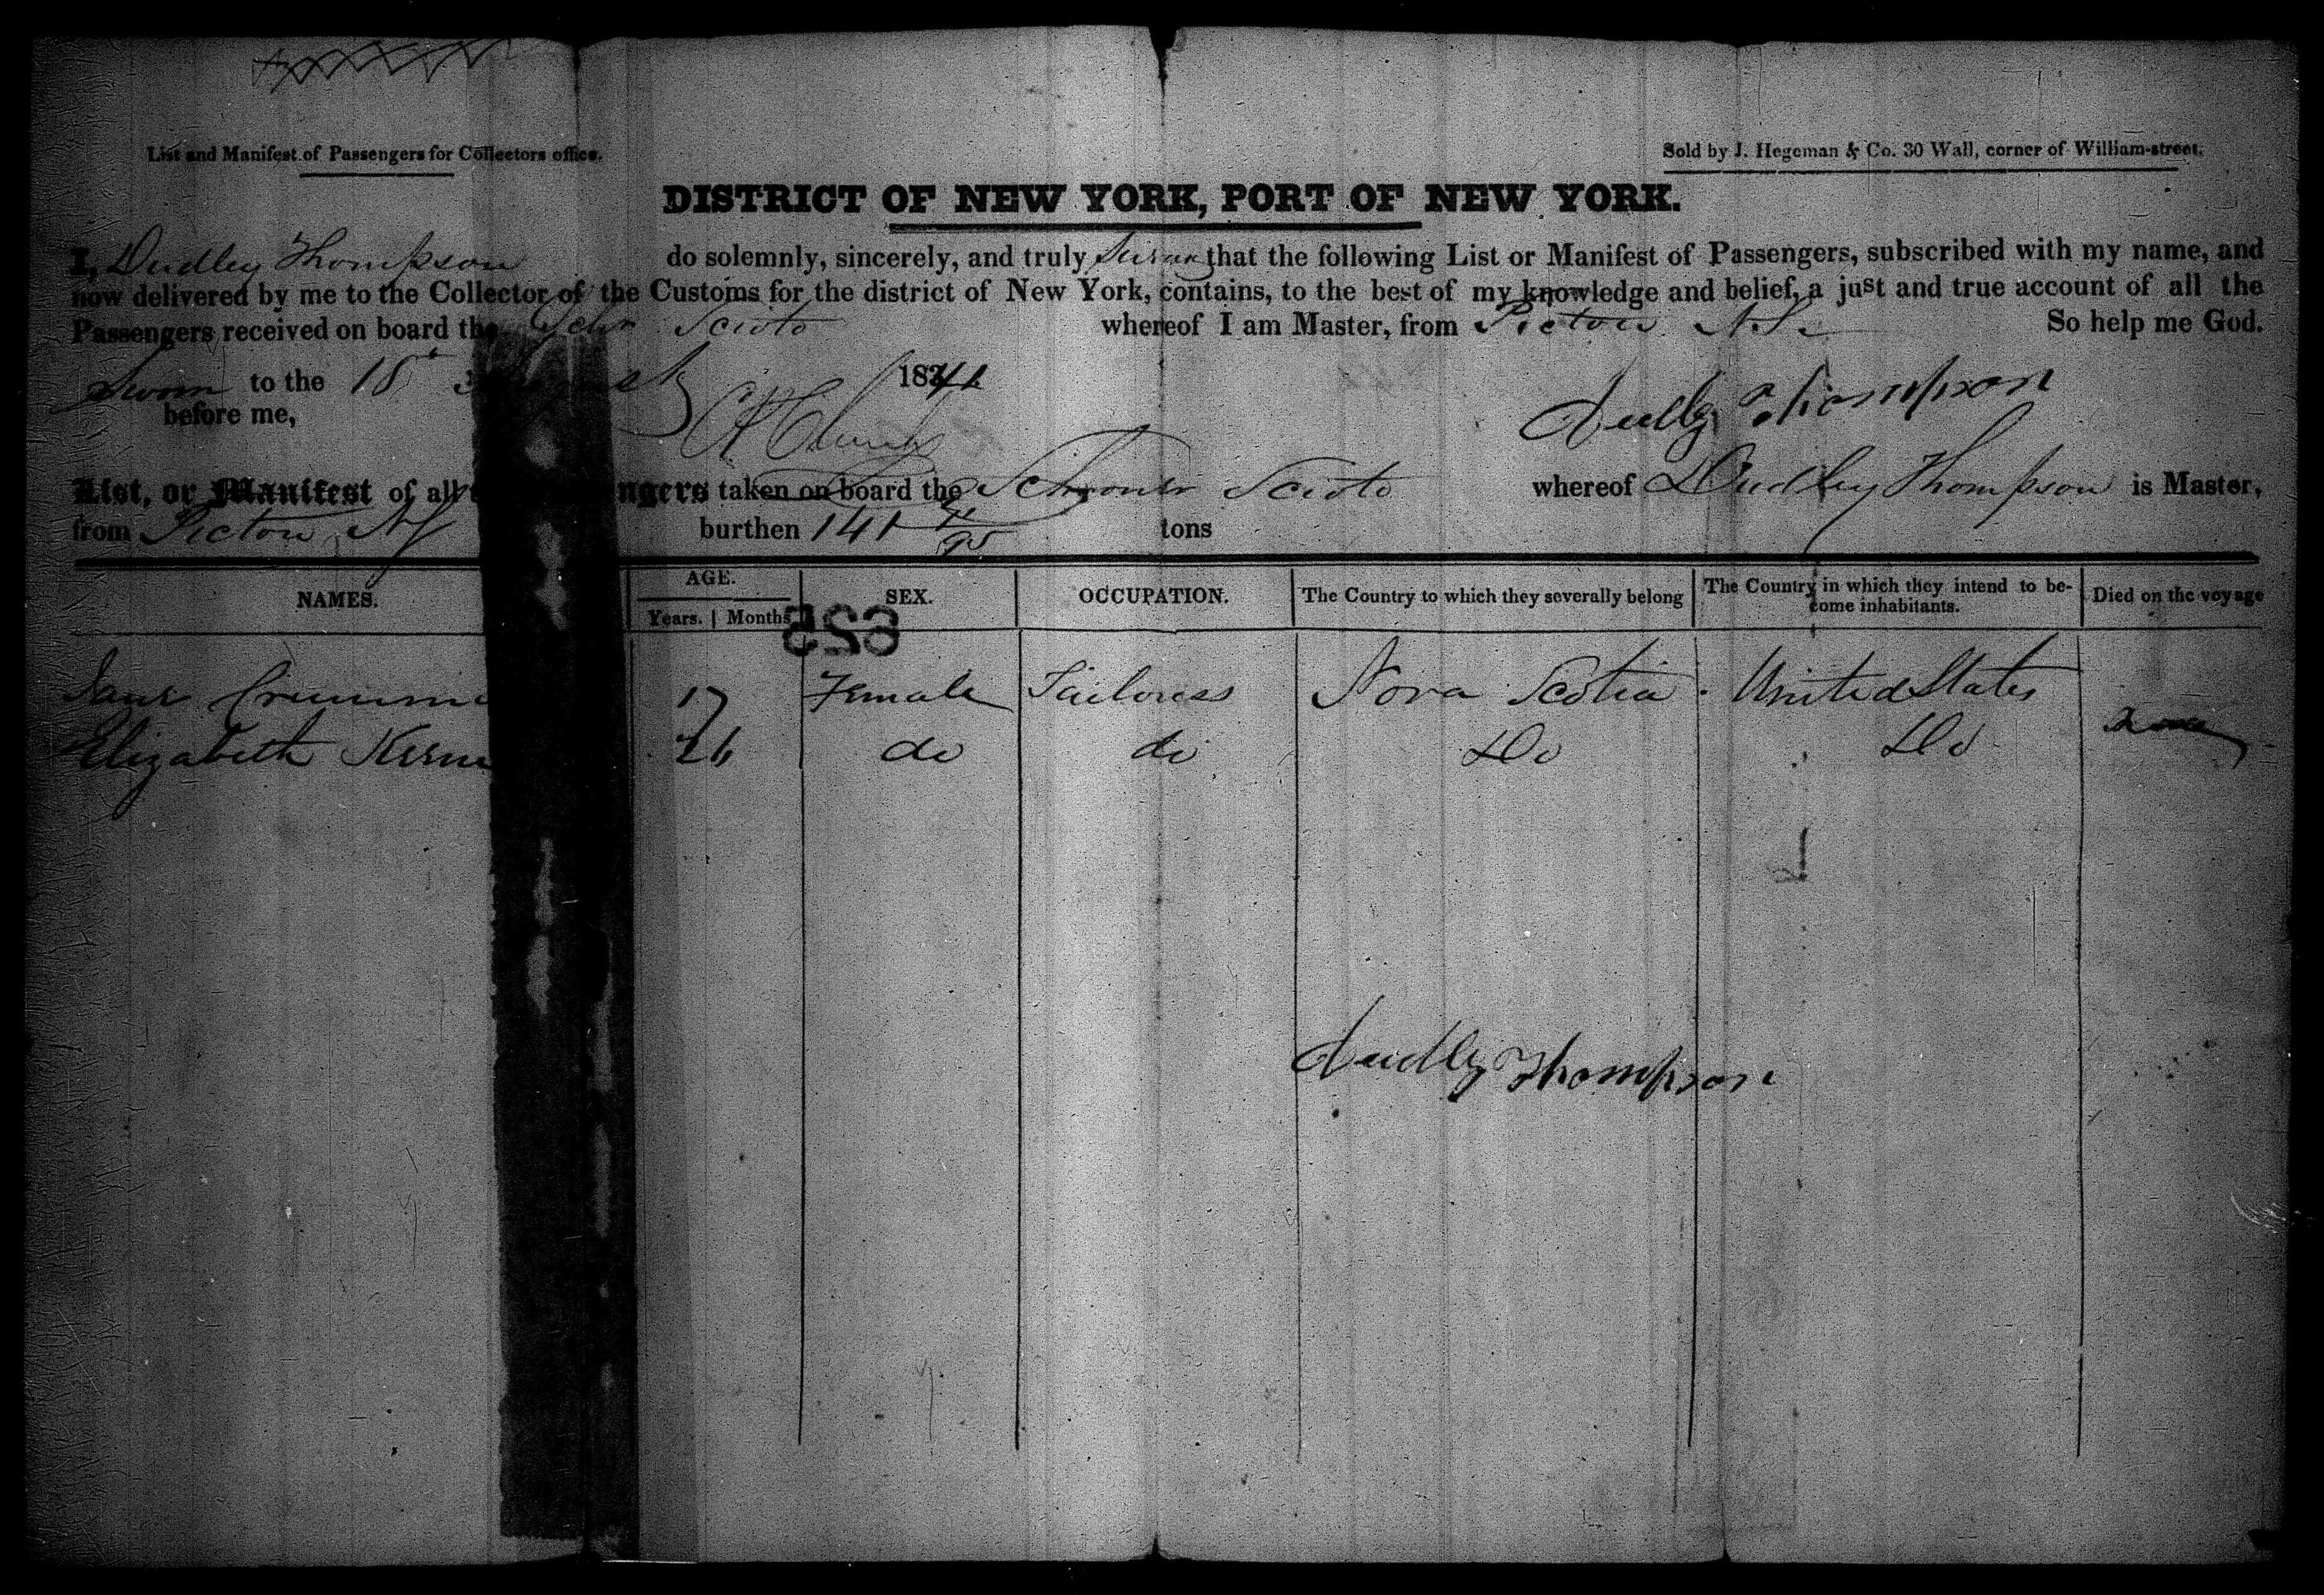 List and Manifest of Passengers for Collectors office.
Sold by J. Hegeman & Co. 30 Wall, corner of William-street.
DISTRICT OF NEW YORK, PORT OF NEW YORK.
I, Dudley Thompson do solemnly, sincerely, and truly swear that the following List or Manifest of Passengers, subscribed with my name, and
now delivered by me to the Collector of the Customs for the district of New York, contains, to the best of my knowledge and belief, a just and true account of all the
Passengers received on board the Schr Scioto whereof I am Master, from Pictou N.S. So help me God.
Sworn to the 18 August 1841
before me,
Dudley Thompson
List, or Manifest of all ngers taken on board the Schooner Scioto whereof Dudley Thompson is Master,
from Pictou NS burthen 141 tons
NAMES. AGE. Years. Months SEX. OCCUPATION. The Country to which they severally belong The Country in which they intend to become inhabitants. Died on the voyage
623
Jane 17 Female Tailoress Nova Scotia United States
Elizabeth 26 do do Do Do None
Dudley Thompson